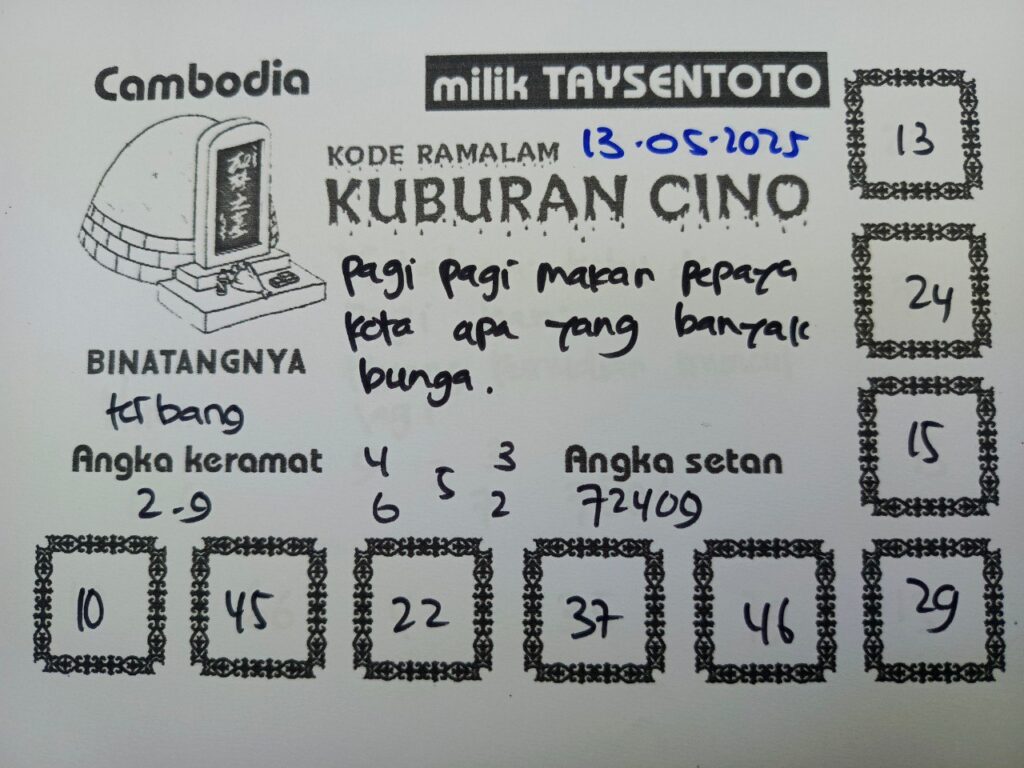 Cambodia
milik TAYSENTOTO
KODE RAMALAM 13.05.2025
KUBURAN CINO
pagi pagi makan pepaya
kota apa yang banyak
bunga.
BINATANGNYA
terbang
Angka keramat
2.9
4 3
5
6 2
Angka setan
72409
13
24
15
10 45 22 37 46 29